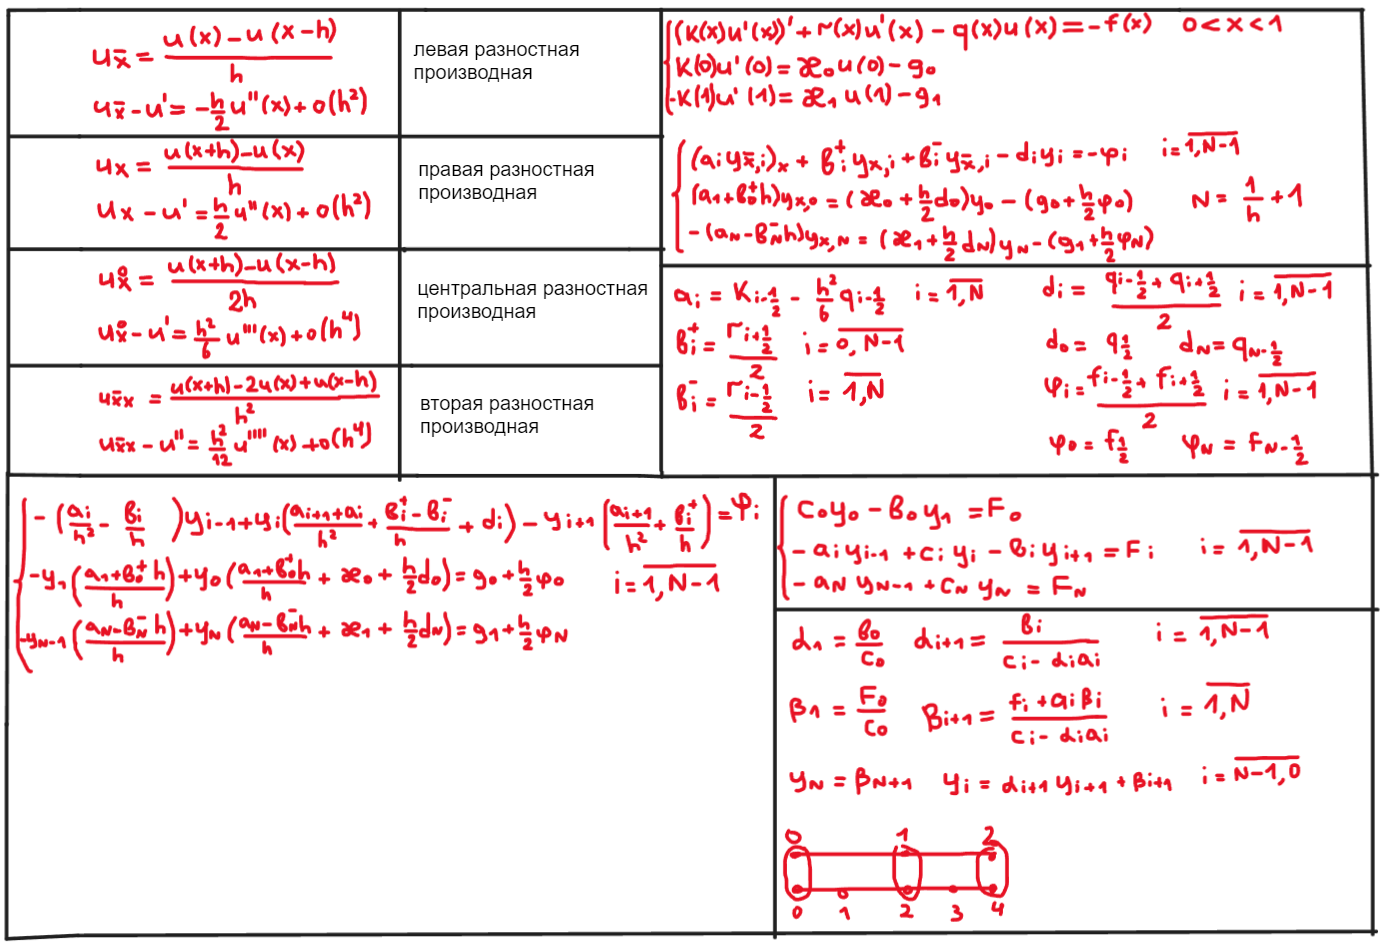 u_x̄ = (u(x) - u(x-h))/h
u_x̄ - u' = -h/2 u''(x) + o(h²)
левая разностная
производная
u_x = (u(x+h) - u(x))/h
u_x - u' = h/2 u''(x) + o(h²)
правая разностная
производная
u_x̊ = (u(x+h) - u(x-h))/2h
u_x̊ - u' = h²/6 u'''(x) + o(h⁴)
центральная разностная
производная
u_x̄x = (u(x+h) - 2u(x) + u(x-h))/h²
u_x̄x - u'' = h²/12 u''''(x) + o(h⁴)
вторая разностная
производная
(k(x)u'(x))' + r(x)u'(x) - q(x)u(x) = -f(x) 0 < x < 1
k(0)u'(0) = æ₀u(0) - g₀
-k(1)u'(1) = æ₁u(1) - g₁
(a_i y_x̄,i)_x + b_i⁺ y_x,i + b_i⁻ y_x̄,i - d_i y_i = -φ_i i = 1,N-1
(a₁ + b₀⁺h)y_x,0 = (æ₀ + h/2 d₀)y₀ - (g₀ + h/2 φ₀) N = 1/h + 1
-(a_N - b_N⁻h)y_x,N = (æ₁ + h/2 d_N)y_N - (g₁ + h/2 φ_N)
a_i = k_i-1/2 - h²/6 q_i-1/2 i = 1,N
b_i⁺ = r_i+1/2 / 2 i = 0,N-1
b_i⁻ = r_i-1/2 / 2 i = 1,N
d_i = (q_i-1/2 + q_i+1/2)/2 i = 1,N-1
d₀ = q_1/2 d_N = q_N-1/2
φ_i = (f_i-1/2 + f_i+1/2)/2 i = 1,N-1
φ₀ = f_1/2 φ_N = f_N-1/2
-(a_i/h² - b_i/h)y_i-1 + y_i((a_i+1 + a_i)/h² + (b_i⁺ - b_i⁻)/h + d_i) - y_i+1(a_i+1/h² + b_i⁺/h) = φ_i
-y₁((a₁ + b₀⁺h)/h) + y₀((a₁ + b₀⁺h)/h + æ₀ + h/2 d₀) = g₀ + h/2 φ₀ i = 1,N-1
-y_N-1((a_N - b_N⁻h)/h) + y_N((a_N - b_N⁻h)/h + æ₁ + h/2 d_N) = g₁ + h/2 φ_N
c₀y₀ - b₀y₁ = F₀
-a_i y_i-1 + c_i y_i - b_i y_i+1 = F_i i = 1,N-1
-a_N y_N-1 + c_N y_N = F_N
α₁ = b₀/c₀ α_i+1 = b_i/(c_i - α_i a_i) i = 1,N-1
β₁ = F₀/c₀ β_i+1 = (f_i + a_i β_i)/(c_i - α_i a_i) i = 1,N
y_N = β_N+1 y_i = α_i+1 y_i+1 + β_i+1 i = N-1,0
0 1 2
0 1 2 3 4